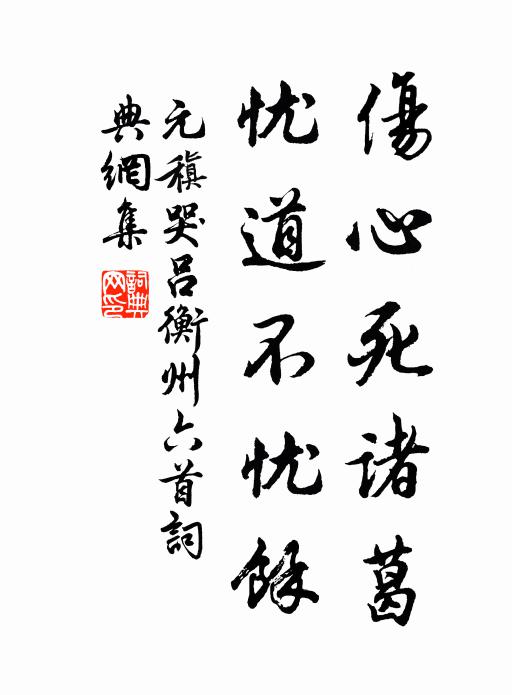 傷心死諸葛
忧道不忧餘
元稹哭吕衡州六首詞
典網集
詞典
网印